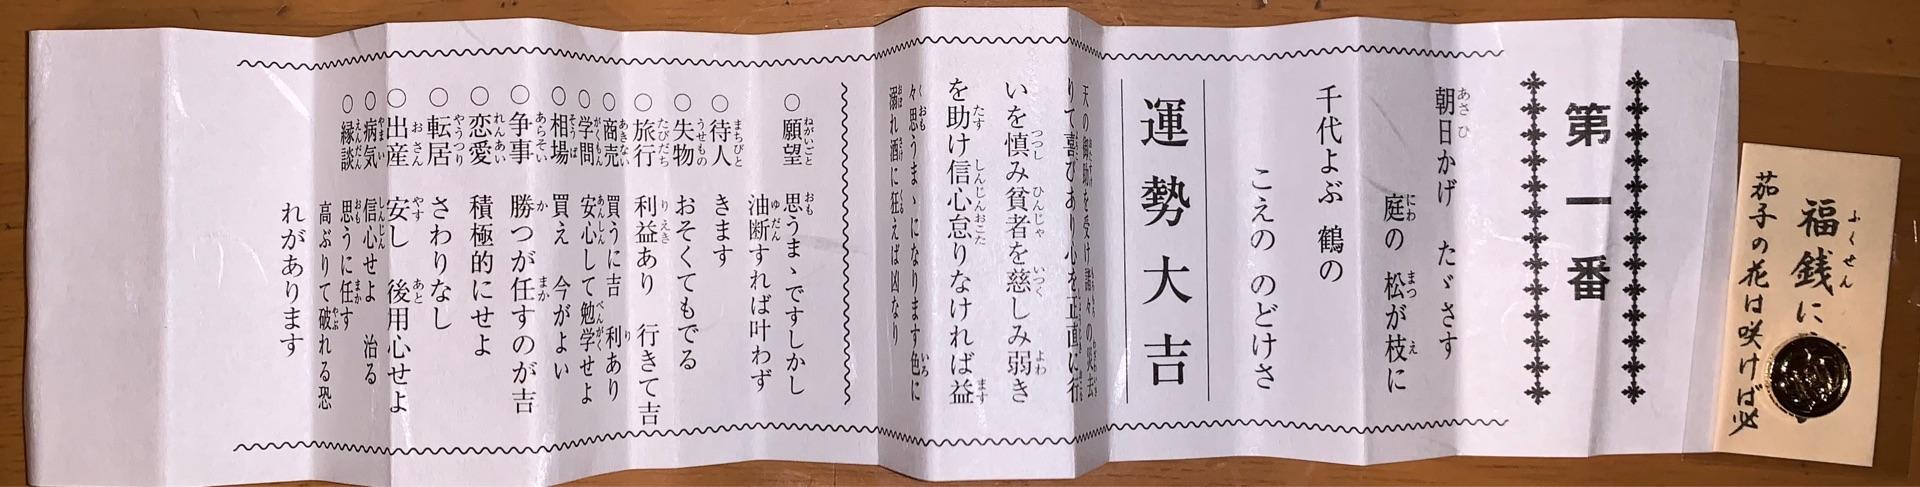 第一番
朝日かげ たゞさす
庭の 松が枝に
千代よぶ 鶴の
こえの のどけさ
運勢大吉
天の御助を受け諸々の災去
りて喜びあり心を正直に行
いを慎み貧者を慈しみ弱き
を助け信心怠りなければ益
々思うまゝになります色に
溺れ酒に狂えば凶なり
○願望 思うまゝですしかし
油断すれば叶わず
○待人 きます
○失物 おそくてもでる
○旅行 利益あり 行きて吉
○商売 買うに吉 利あり
○学問 安心して勉学せよ
○相場 買え 今がよい
○争事 勝つが任すのが吉
○恋愛 積極的にせよ
○転居 さわりなし
○出産 安し 後用心せよ
○病気 信心せよ 治る
○縁談 思うに任す
高ぶりて破れる恐
れがあります
福銭に
茄子の花は咲けば必